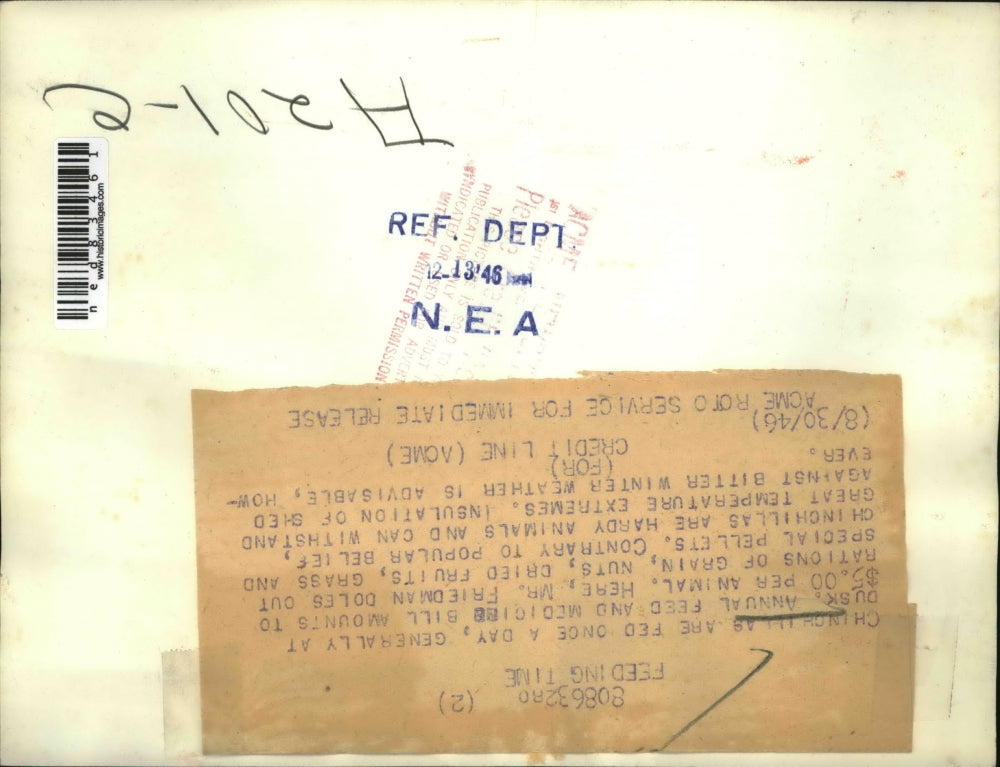 A201-C
ned83461
www.historicimages.com
REF. DEPT.
12-13'46
N. E. A
ACME
PUBLICATION ONLY
SYNDICATED OR
WITHOUT WRITTEN PERMISSION
808632RO (2)
FEEDING TIME
CHINCHILLAS ARE FED ONCE A DAY, GENERALLY AT
DUSK. ANNUAL FEED AND MEDICINE BILL AMOUNTS TO
$5.00 PER ANIMAL. HERE, MR. FRIEDMAN DOLES OUT
RATIONS OF GRAIN, NUTS, DRIED FRUITS, GRASS AND
SPECIAL PELLETS. CONTRARY TO POPULAR BELIEF,
CHINCHILLAS ARE HARDY ANIMALS AND CAN WITHSTAND
GREAT TEMPERATURE EXTREMES. INSULATION OF SHED
AGAINST BITTER WINTER WEATHER IS ADVISABLE, HOW-
EVER.
(FOR)
CREDIT LINE (ACME)
(8/30/46)
ACME ROTO SERVICE FOR IMMEDIATE RELEASE